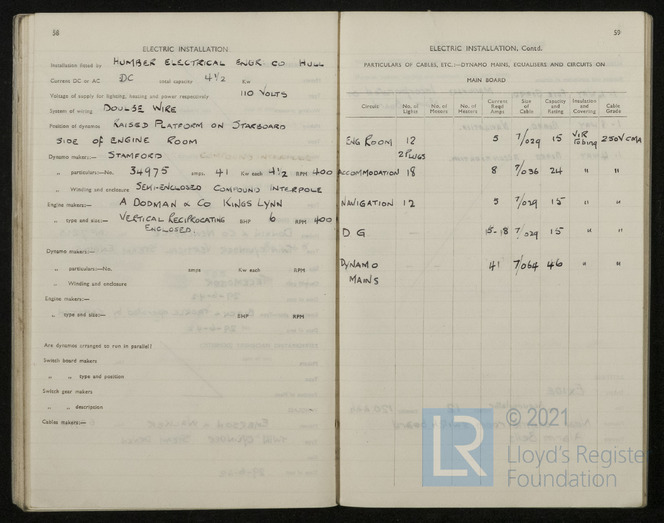 58
ELECTRIC INSTALLATION
Installation fitted by HUMBER ELECTRICAL ENGR CO HULL
Current DC or AC DC total capacity 4½ Kw
Voltage of supply for lighting, heating and power respectively 110 VOLTS
System of wiring DOULSE WIRE
Position of dynamos RAISED PLATFORM ON STARBOARD
SIDE OF ENGINE ROOM
Dynamo makers:— STAMFORD
„ particulars:—No. 34975 amps. 41 Kw each 4½ RPM 400
„ Winding and enclosure SEMI-ENCLOSED COMPOUND INTERPOLE
Engine makers:— A DODMAN & CO KINGS LYNN
„ type and size:— VERTICAL RECIPROCATING BHP 6 RPM 400
ENCLOSED
Dynamo makers:—
„ particulars:—No. amps Kw each RPM
„ Winding and enclosure
Engine makers:—
„ type and size:— BHP RPM
Are dynamos arranged to run in parallel?
Switch board makers
„ „ type and position
Switch gear makers
„ „ description
Cables makers:—
59
ELECTRIC INSTALLATION, Contd.
PARTICULARS OF CABLES, ETC.:—DYNAMO MAINS, EQUALISERS AND CIRCUITS ON
MAIN BOARD
Circuit No. of Lights No. of Motors No. of Heaters Current Reqd Amps Size of Cable Capacity and Rating Insulation and Covering Cable Grade
ENG ROOM 12 5 7/029 15 VIR Tubing 250V CMA
2 PLUGS
ACCOMMODATION 18 8 7/036 24 " "
NAVIGATION 12 5 7/029 15 " "
D G 15-18 7/029 15 " "
DYNAMO 41 7/064 46 " "
MAINS
© 2021
LR Lloyd's Register
Foundation